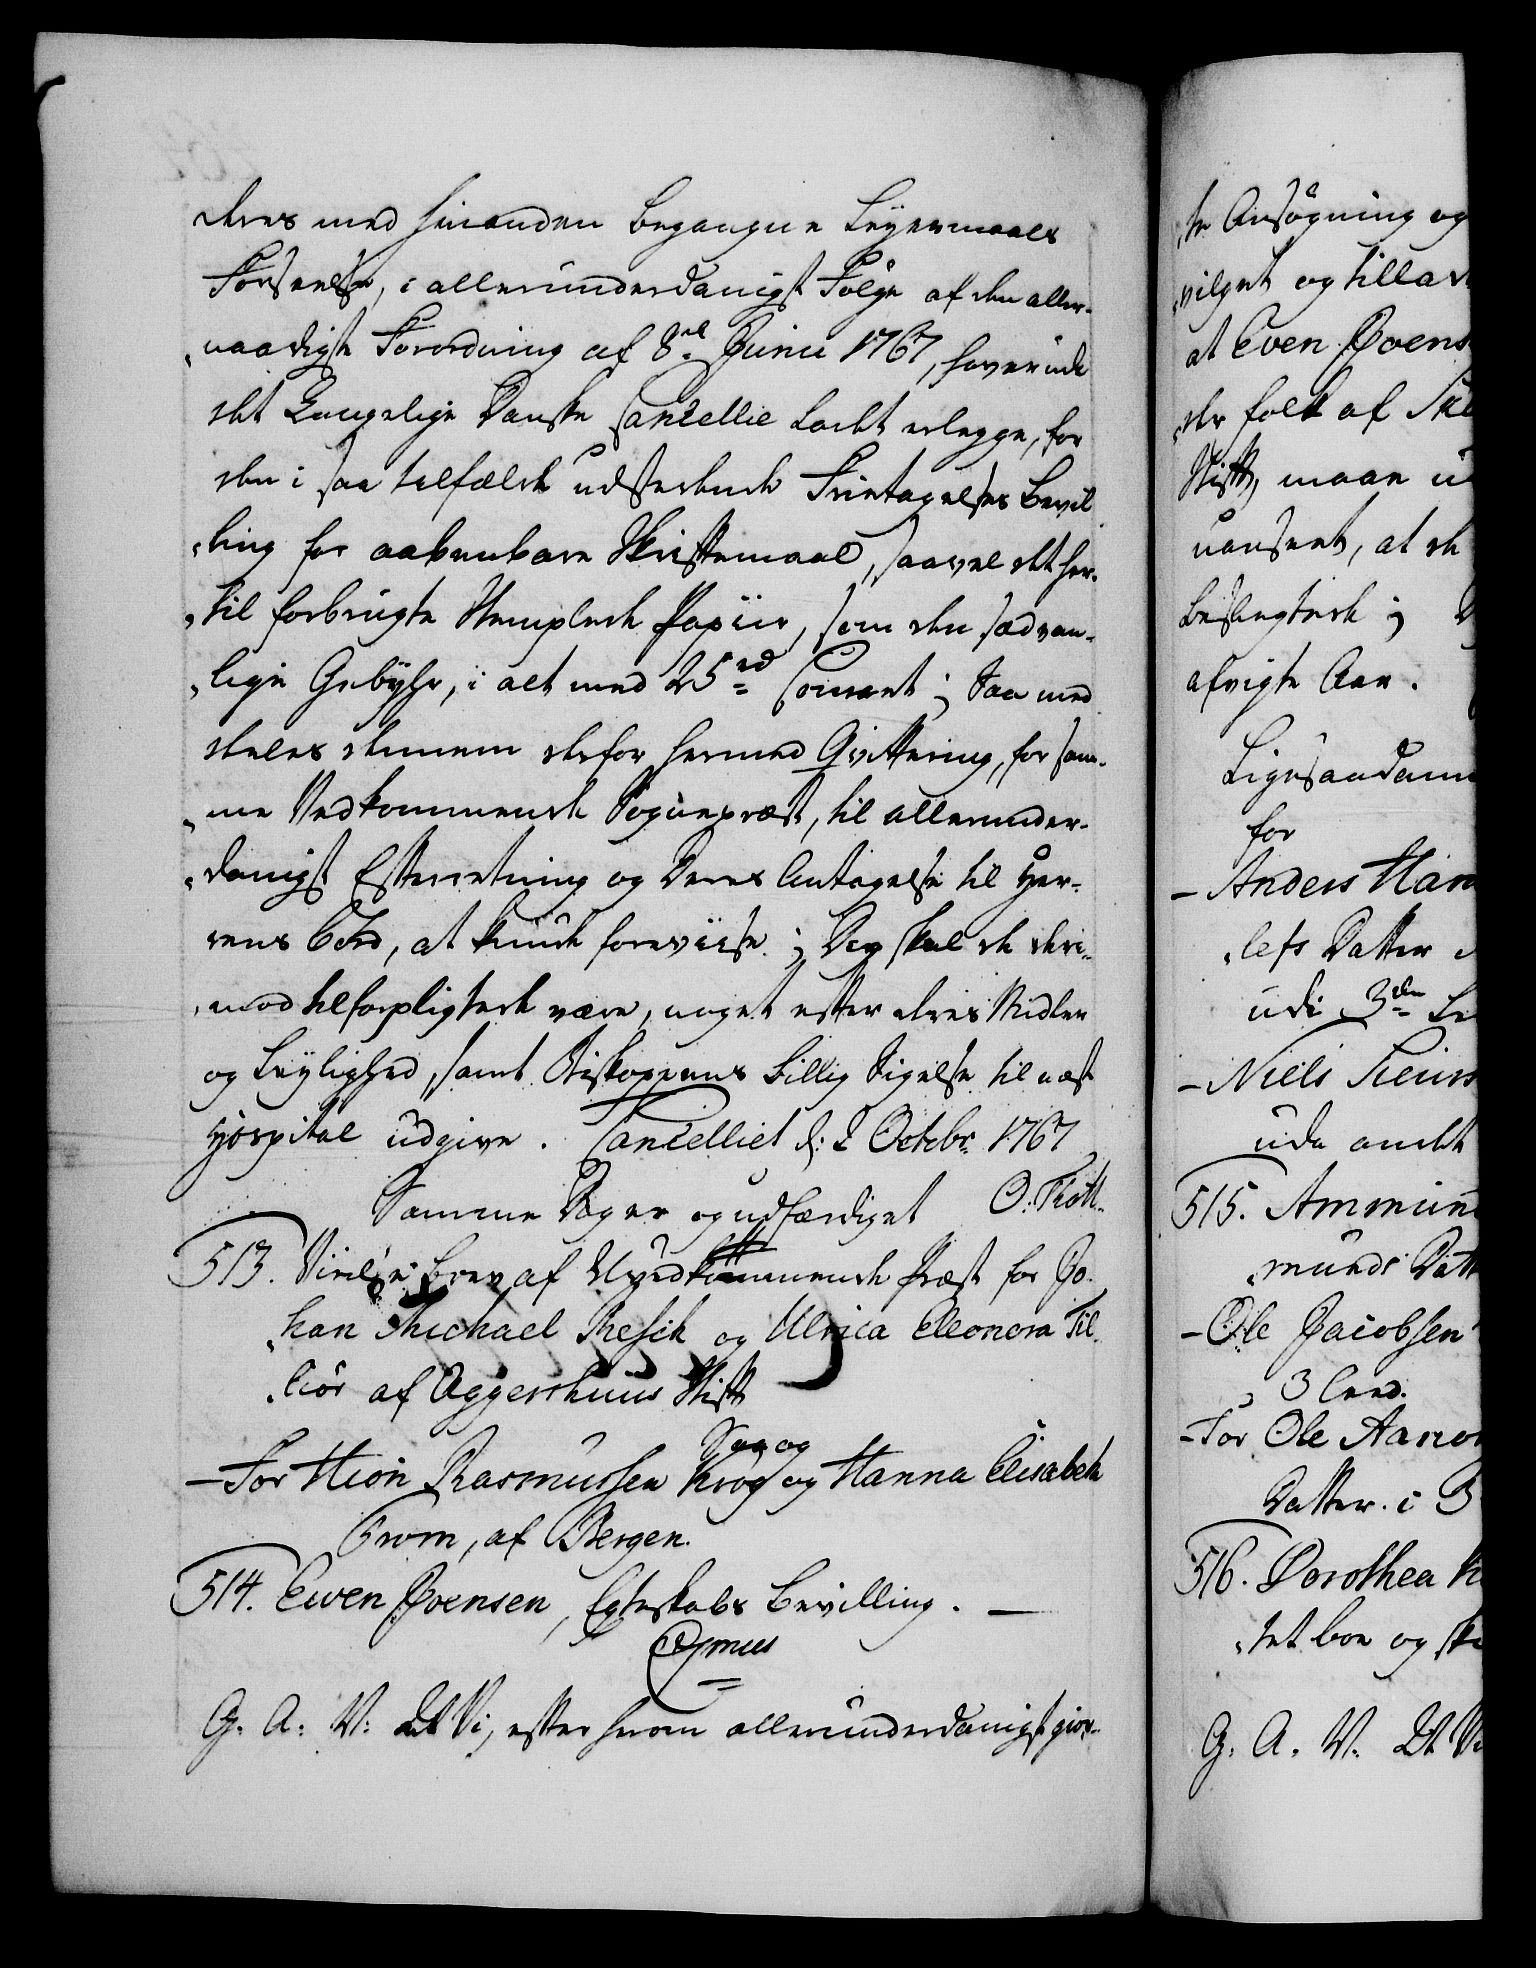 deres med hinanden begangne Leyermaals
Forseelse, i allerunderdanigst Følge af den aller-
„naadigste Forordning af 8de Junii 1767, haver udi
det Kongelige Danske Cancellie ladet erlegge, for
den i saa tilfælde udstædende Fritagelses Bevil
„ling for aabenbare Skriftemaal, saavel det her-
„til forbrugte Stemplede Papiir, som den sædvan-
„lige Gebyhr, i alt med 25 rd Courant; Saa med
deeles dennem derfor hermed Qvittering, for sam-
„me Vedkommende Sognepræst, til allerunder-
„danigst Efterretning og Deres Antagelse til Her-
rens Bord, at kunde foreviise; Dog skal de deri-
„mod tilforpligtede være, noget efter deres Midler
og Leylighed, samt Biskoppens billig Sigelse til næst
Hospital udgive. Cancelliet d: 2 Octobr: 1767
Samme Dag er og udfærdiget O: Thott.
513. Vielse brev af Uvedkommende Præst for Jo-
„han Michael Resch og Ulrica Eleonora Til-
„liör af Aggershuus Stift
Saa og
– For Hion Rasmussen Krog og Hanna Elisabeth
From, af Bergen.
514. Ewen Joensen, Egteskabs Bevilling. —
G. A: V: At Vi, efter herom allerunderdanigst gior-
„te Ansøgning og
„vilget og tillad
at Even Joens
„de folk af
Stift, maae
uanseet, at de
beslegtede;
afvigte Aar.
Ligesaadan
for
– Anders Han
„lefs Datter
udi 3die Le
– Niels
udi andet
515. Ammun
„munds Datt
– Ole Jacobsen
3 Leed.
– For Ole Aanon
Datter i 3
516. Dorothea K
„tet boe og sk
G. A. V. At Vi